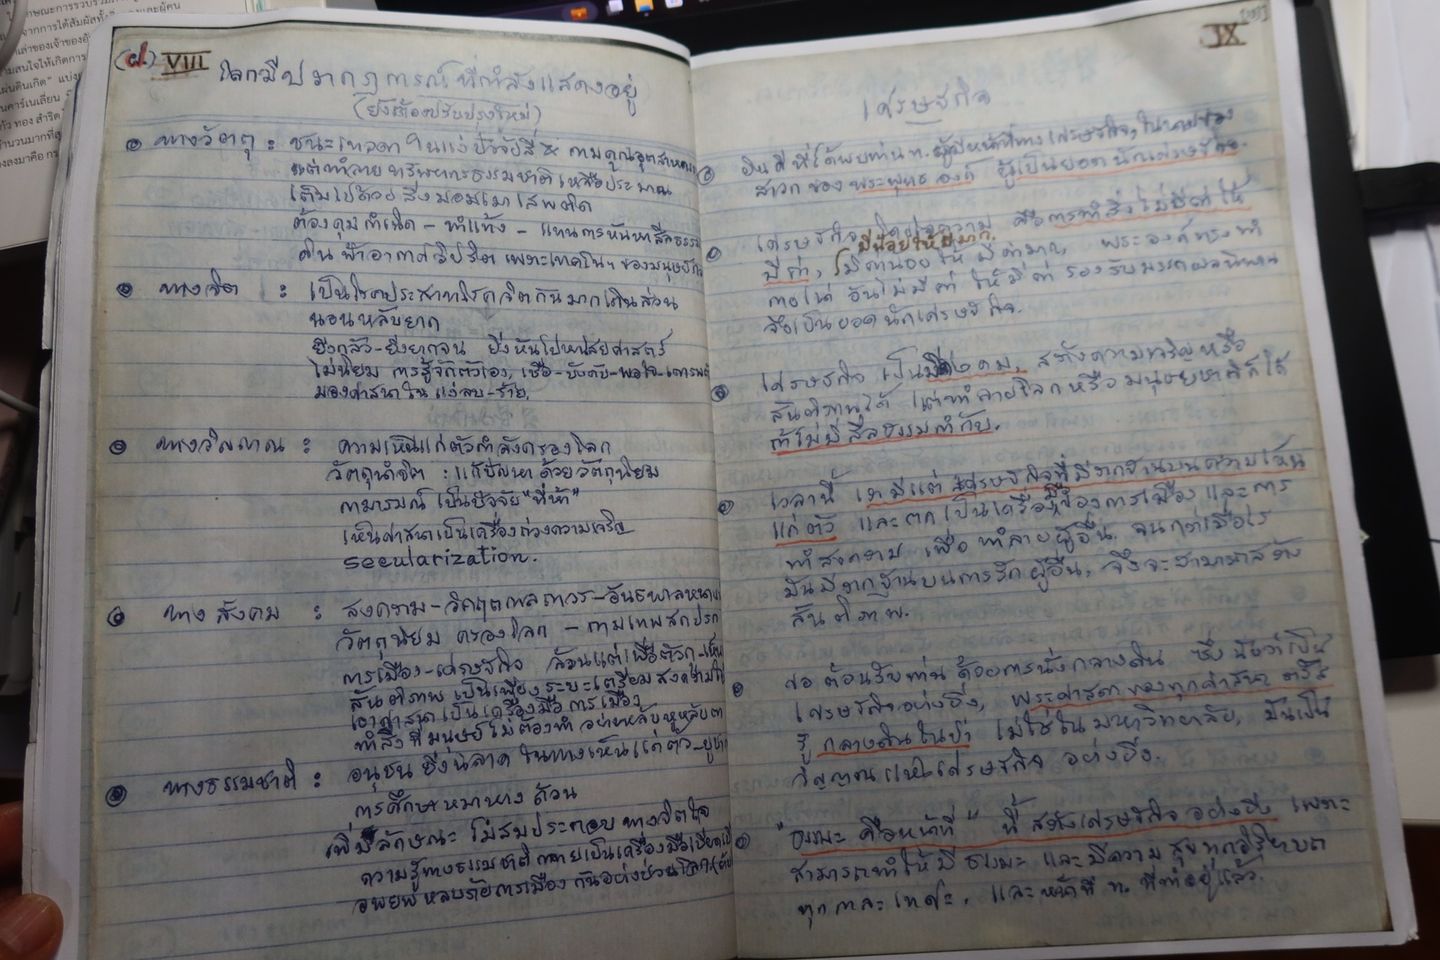 (ฝ) VIII
โลกมีปรากฏการณ์ที่กำลังแสดงอยู่
(ยังต้องปรับปรุงใหม่)
๏ ทางวัตถุ : ชนะเทวดา ในแง่ปัจจัยสี่
แต่ทำลายทรัพยากรธรรมชาติ เหลือประมาณ
เต็มไปด้วยสิ่งมอมเมาเสพติด
ต้องคุมกำเนิด - ทำแท้ง - แทนการหันหาศีลธรรม
ดินฟ้าอากาศวิปริต เพราะเทคโนฯ ของมนุษย์
๏ ทางจิต : เป็นโรคประสาทโรคจิตกันมากเกินส่วน
นอนหลับยาก
ยิ่งกลัว-ยิ่งยากจน ยิ่งหันไปหาไสยศาสตร์
ไม่นิยม การรู้จักตัวเอง, เชื่อ-บังคับ-พอใจ-เคารพ
มองศาสนาในแง่ลบ-ร้าย.
๏ ทางวิญญาณ : ความเห็นแก่ตัวกำลังครองโลก
วัตถุนำจิต : แก้ปัญหาด้วยวัตถุนิยม
กามารมณ์ เป็นปัจจัย "ที่ห้า"
เห็นศาสนาเป็นเครื่องถ่วงความเจริญ
secularization.
๏ ทางสังคม : สงคราม-วิกฤตผลถาวร-อันธพาล
วัตถุนิยม ครองโลก - กามเทพ
การเมือง-เศรษฐกิจ ล้วนแต่เพื่อตัวกู
สันติภาพ เป็นเพียงระยะเตรียมสงคราม
เอาศาสนาเป็นเครื่องมือการเมือง
ทำสิ่งที่มนุษย์ไม่ต้องทำ อย่างหลับหูหลับตา
๏ ทางธรรมชาติ : อนุชนยิ่งฉลาด ในทางเห็นแก่ตัว
การศึกษาหมาหางด้วน
เพิ่มลักษณะ ไม่สมประกอบ ทางจิตใจ
ความรู้ทางธรรมชาติ กลายเป็นเครื่องมือ
อพยพหลบภัยการเมืองกันอย่าง
IX
เศรษฐกิจ
๏ ยินดีที่ได้พบท่าน ท. ผู้มีหน้าที่ทางเศรษฐกิจ, ในนามของ
สาวกของพระพุทธองค์ ผู้เป็นยอดนักเศรษฐกิจ.
๏ เศรษฐกิจ โดยใจความ คือการทำสิ่งไม่มีค่าให้
มีน้อยให้มีมาก.
มีค่า, มีค่าน้อยให้มีค่ามาก, พระองค์ทรงทำ
กายใจ อันไม่มีค่า ให้มีค่า รองรับมรรคผลนิพพาน
จึงเป็นยอดนักเศรษฐกิจ.
๏ เศรษฐกิจ เป็นมีด ๒ คม, สร้างความเจริญ หรือ
สันติภาพได้ แต่ทำลายโลกหรือมนุษยชาติก็ได้
ถ้าไม่มีศีลธรรมกำกับ.
๏ เวลานี้ เรามีแต่เศรษฐกิจที่มีรากฐานบนความเห็น
แก่ตัว และตกเป็นเครื่องมือของการเมืองและการ
ทำสงคราม เพื่อทำลายผู้อื่น, จนกว่าเมื่อไร
มันมีรากฐานบนการรักผู้อื่น, จึงจะสามารถสร้าง
สันติภาพ.
๏ ขอต้อนรับท่านด้วยการนั่งกลางดิน ซึ่งนับว่าเป็น
เศรษฐกิจอย่างยิ่ง, พระศาสดาของทุกศาสนา ตรัส
รู้กลางดินในป่า ไม่ใช่ในมหาวิทยาลัย, มันเป็น
วิญญาณแห่งเศรษฐกิจ อย่างยิ่ง.
๏ "ธรรมะ คือหน้าที่" นี้ สร้างเศรษฐกิจอย่างยิ่ง เพราะ
สามารถทำให้มีธรรมะ และมีความสุขทุกอิริยาบถ
ทุกกาละเทศะ, และหน้าที่ ท. ที่ทำอยู่แล้ว.